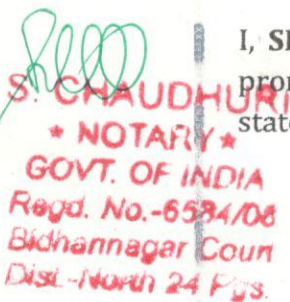 I, S
pro
state
S. CHAUDHURI
* NOTARY *
GOVT. OF INDIA
Regd. No.-6584/06
Bidhannagar Court
Dist.-North 24 Pgs.